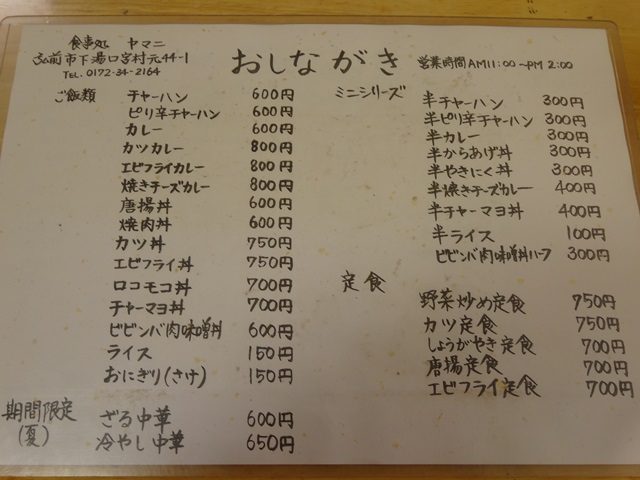 食事処 ヤマニ
弘前市下湯口宮村元44-1
TEL. 0172-34-2164
おしながき
営業時間AM11:00~PM2:00
ご飯類
チャーハン 600円
ピリ辛チャーハン 600円
カレー 600円
カツカレー 800円
エビフライカレー 800円
焼きチーズカレー 800円
唐揚丼 600円
焼肉丼 600円
カツ丼 750円
エビフライ丼 750円
ロコモコ丼 700円
チャーマヨ丼 700円
ビビンバ肉味噌丼 600円
ライス 150円
おにぎり(さけ) 150円
期間限定
(夏)
ざる中華 600円
冷やし中華 650円
ミニシリーズ
半チャーハン 300円
半ピリ辛チャーハン 300円
半カレー 300円
半からあげ丼 300円
半やきにく丼 300円
半焼きチーズカレー 400円
半チャーマヨ丼 400円
半ライス 100円
ビビンバ肉味噌丼ハーフ 300円
定食
野菜炒め定食 750円
カツ定食 750円
しょうがやき定食 700円
唐揚定食 700円
エビフライ定食 700円